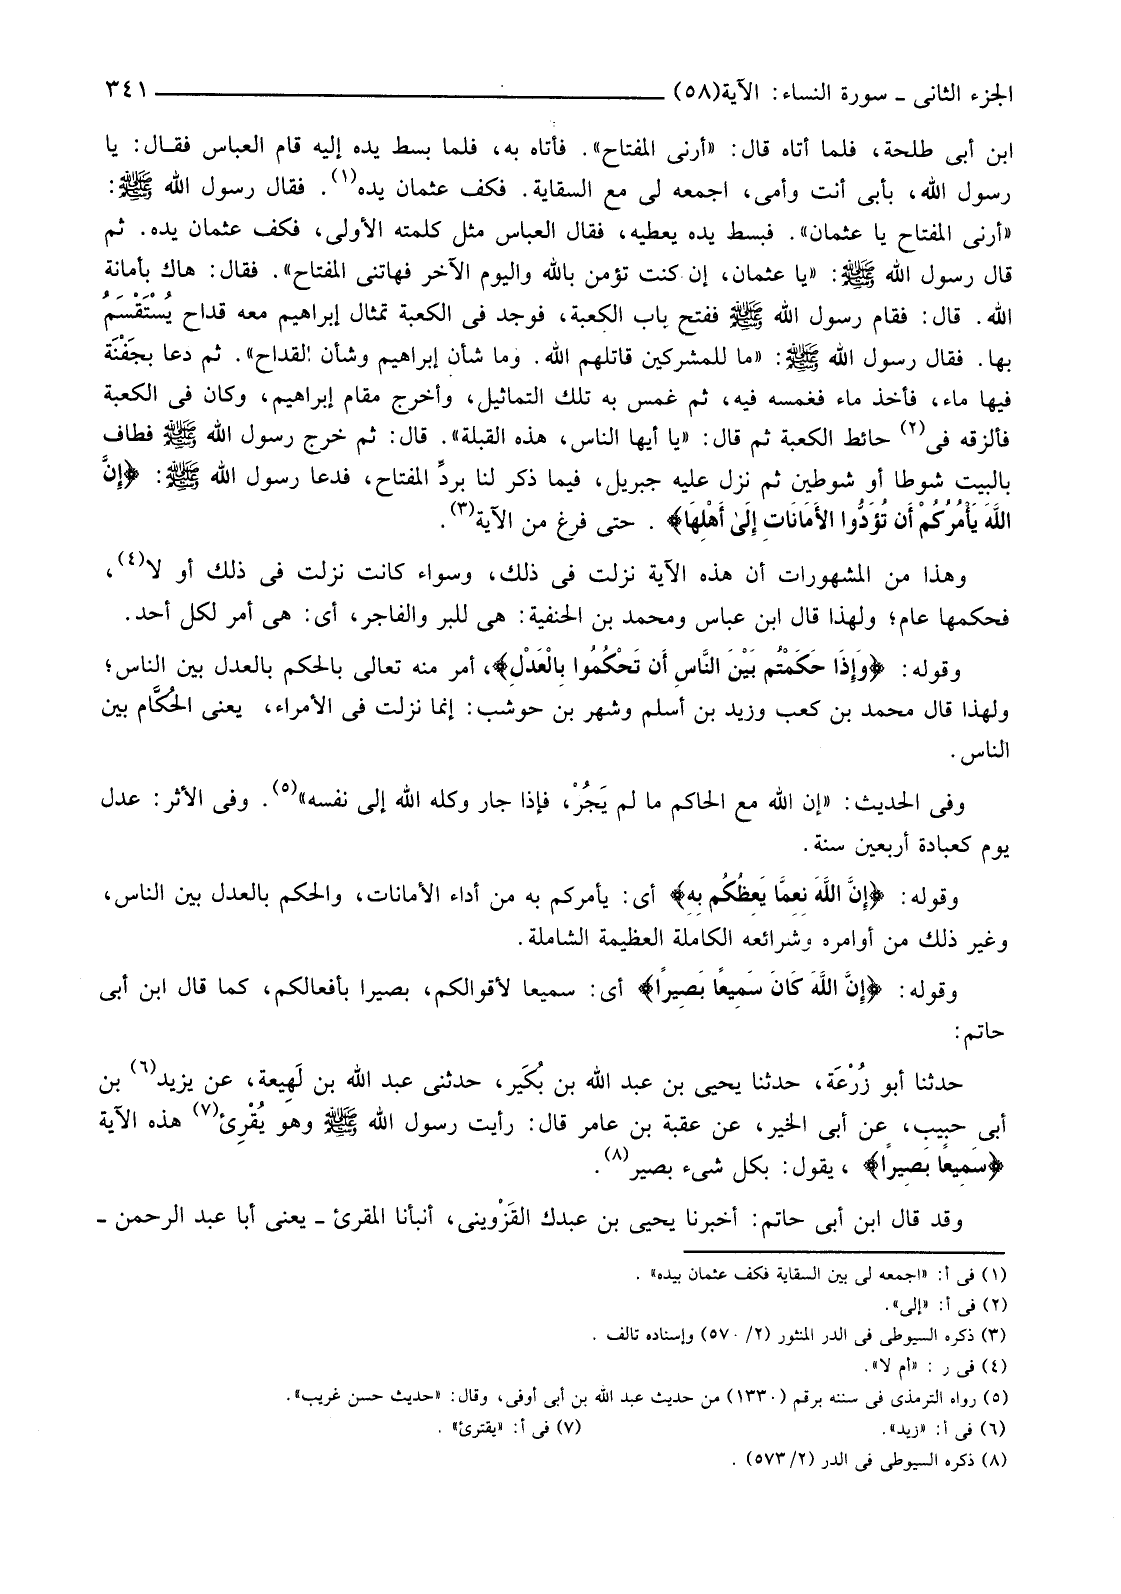 الجزء الثانى ـ سورة النساء: الآية(٥٨) ٣٤١
ابن أبى طلحة، فلما أتاه قال: «أرنى المفتاح». فأتاه به، فلما بسط يده إليه قام العباس فقـال: يا
رسول الله، بأبى أنت وأمى، اجمعه لى مع السقاية. فكف عثمان يده(١). فقال رسول الله ﷺ:
«أرنى المفتاح يا عثمان». فبسط يده يعطيه، فقال العباس مثل كلمته الأولى، فكف عثمان يده. ثم
قال رسول الله ﷺ: «يا عثمان، إن كنت تؤمن بالله واليوم الآخر فهاتنى المفتاح». فقال: هاك بأمانة
الله. قال: فقام رسول الله ﷺ ففتح باب الكعبة، فوجد فى الكعبة تمثال إبراهيم معه قداح يُسْتَقْسَمُ
بها. فقال رسول الله ﷺ: «ما للمشركين قاتلهم الله. وما شأن إبراهيم وشأن القداح». ثم دعا بجَفْنَة
فيها ماء، فأخذ ماء فغمسه فيه، ثم غمس به تلك التماثيل، وأخرج مقام إبراهيم، وكان فى الكعبة
فألزقه فى(٢) حائط الكعبة ثم قال: «يا أيها الناس، هذه القبلة». قال: ثم خرج رسول الله ﷺ فطاف
بالبيت شوطا أو شوطين ثم نزل عليه جبريل، فيما ذكر لنا بردِّ المفتاح، فدعا رسول الله ﷺ: ﴿إِنَّ
اللَّهَ يَأْمُرُكُمْ أَن تُؤَدُّوا الأَمَانَاتِ إِلَىٰ أَهْلِهَا﴾ . حتى فرغ من الآية(٣).
وهذا من المشهورات أن هذه الآية نزلت فى ذلك، وسواء كانت نزلت فى ذلك أو لا(٤)،
فحكمها عام؛ ولهذا قال ابن عباس ومحمد بن الحنفية: هى للبر والفاجر، أى: هى أمر لكل أحد.
وقوله: ﴿وَإِذَا حَكَمْتُم بَيْنَ النَّاسِ أَن تَحْكُمُوا بِالْعَدْلِ﴾، أمر منه تعالى بالحكم بالعدل بين الناس؛
ولهذا قال محمد بن كعب وزيد بن أسلم وشهر بن حوشب: إنما نزلت فى الأمراء، يعنى الحُكَّام بين
الناس.
وفى الحديث: «إن الله مع الحاكم ما لم يَجُرْ، فإذا جار وكله الله إلى نفسه»(٥). وفى الأثر: عدل
يوم كعبادة أربعين سنة.
وقوله: ﴿إِنَّ اللَّهَ نِعِمَّا يَعِظُكُم بِهِ﴾ أى: يأمركم به من أداء الأمانات، والحكم بالعدل بين الناس،
وغير ذلك من أوامره وشرائعه الكاملة العظيمة الشاملة.
وقوله: ﴿إِنَّ اللَّهَ كَانَ سَمِيعًا بَصِيرًا﴾ أى: سميعا لأقوالكم، بصيرا بأفعالكم، كما قال ابن أبى
حاتم:
حدثنا أبو زُرْعَة، حدثنا يحيى بن عبد الله بن بُكَير، حدثنى عبد الله بن لَهِيعة، عن يزيد(٦) بن
أبى حبيب، عن أبى الخير، عن عقبة بن عامر قال: رأيت رسول الله ﷺ وهو يُقْرِئ(٧) هذه الآية
﴿سَمِيعًا بَصِيرًا﴾ ، يقول: بكل شىء بصير(٨).
وقد قال ابن أبى حاتم: أخبرنا يحيى بن عبدك القَزْوينى، أنبأنا المقرئ ـ يعنى أبا عبد الرحمن ـ
(١) فى أ: «اجمعه لى بين السقاية فكف عثمان بيده» .
(٢) فى أ: «إلى».
(٣) ذكره السيوطى فى الدر المنثور (٢/ ٥٧٠) وإسناده تالف .
(٤) فى ر : «أم لا».
(٥) رواه الترمذى فى سننه برقم (١٣٣٠) من حديث عبد الله بن أبى أوفى، وقال: «حديث حسن غريب».
(٦) فى أ: «زيد». (٧) فى أ: «يقترئ» .
(٨) ذكره السيوطى فى الدر (٢/ ٥٧٣) .